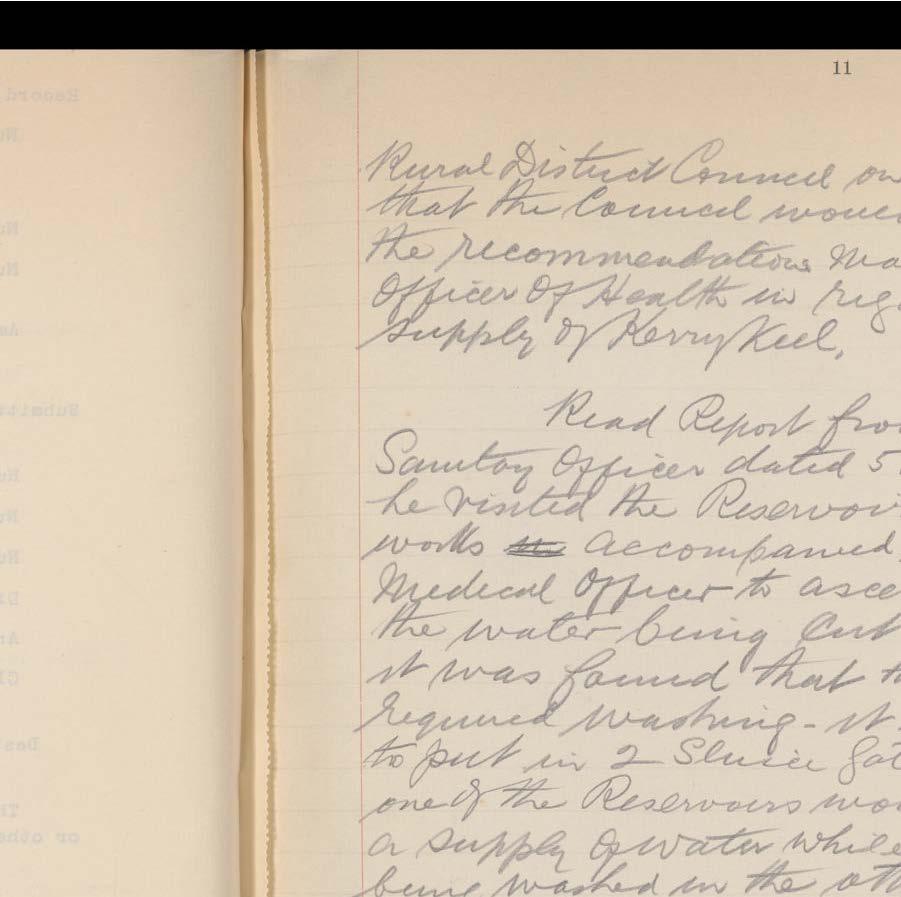 11
Rural District Council on
that the Council woul
the recommendations Ma
Officer Of Health in reg
supply of KerryKeel.
Read Report fro
Sanitary Officer dated 5
he visited the Reservoi
works accompanied
Medical Officer to asce
the water being Cut
it was found that t
required washing - it
to put in 2 Sluice Gat
one of the Reservoirs wo
a supply of water while
being washed in the oth
Record
Submitt
or othe